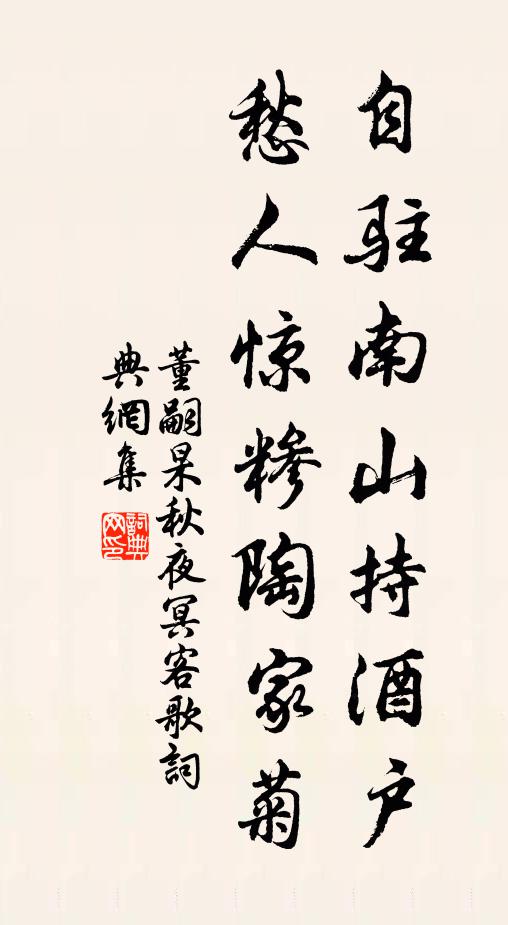 自驻南山持酒户
愁人惊糁陶家菊
董嗣杲秋夜冥客歌詞
典網集
詞典网印